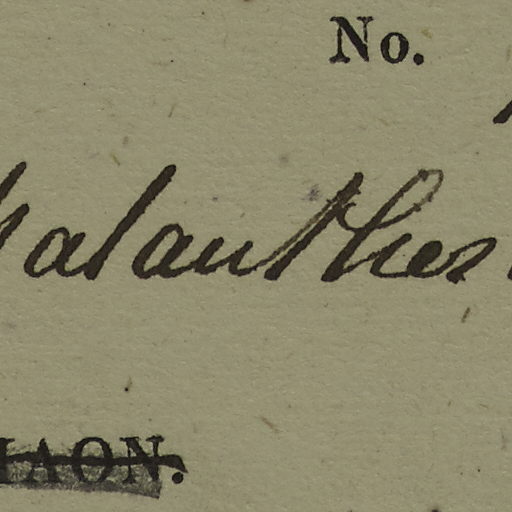 No.
alanthes
IAON.